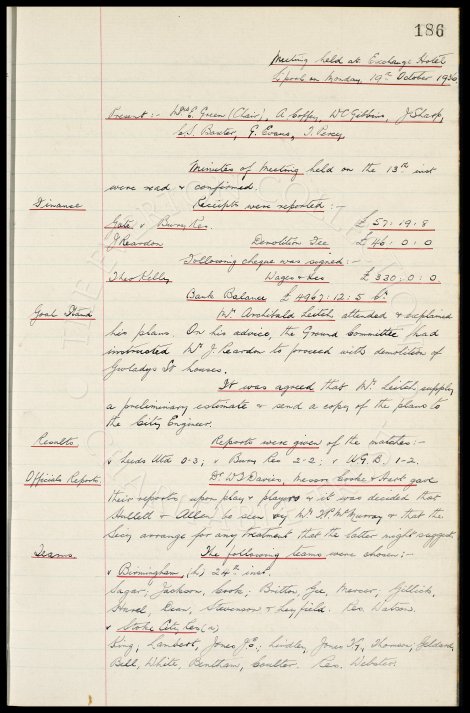 186
Meeting held at Exchange Hotel
L'pool on Monday, 19th October 1936
Present :- W. E. Green (Chair), A Coffey, W C Gibbins, J Sharp,
C. S. Baxter, G. Evans, T. Percy
Minutes of Meeting held on the 13th inst
were read & confirmed.
Finance Receipts were reported :-
Gate v Bury Res. £57 : 19 : 8
J Reardon Demolition Fee £46 : 0 : 0
Following cheque was signed :-
Theo Kelly Wages &c £330 : 0 : 0
Bank Balance £4967 : 12 : 5
Goal Stand Mr Archibald Leitch attended & explained
his plans. On his advice, the Ground Committee had
instructed J. Reardon to proceed with demolition of
Gwladys St houses.
It was agreed that Mr Leitch supply
a preliminary estimate & send a copy of the plans to
the City Engineer.
Results Reports were given of the matches :-
v Leeds Utd 0-3 ; v Bury Res 2-2 ; 1-2.
Officials Reports. Dr W S Davies, Messrs Cooke & Hart gave
their reports upon play & players & it was decided that
& Allen be seen by Mr McMurray & that the
Secy arrange for any treatment that the latter might suggest.
Teams The following teams were chosen :-
v Birmingham, (h) 24th inst.
Sagar; Jackson, Cook; Britton, Gee, Mercer; Gillick,
Dean, Stevenson & Leyfield. Res. Watson.
v Stoke City Res (a)
King; Lambert, Jones J E; Lindley, Jones T G, Thomson; Geldard,
Bell, White, Bentham, Coulter. Res. Webster.